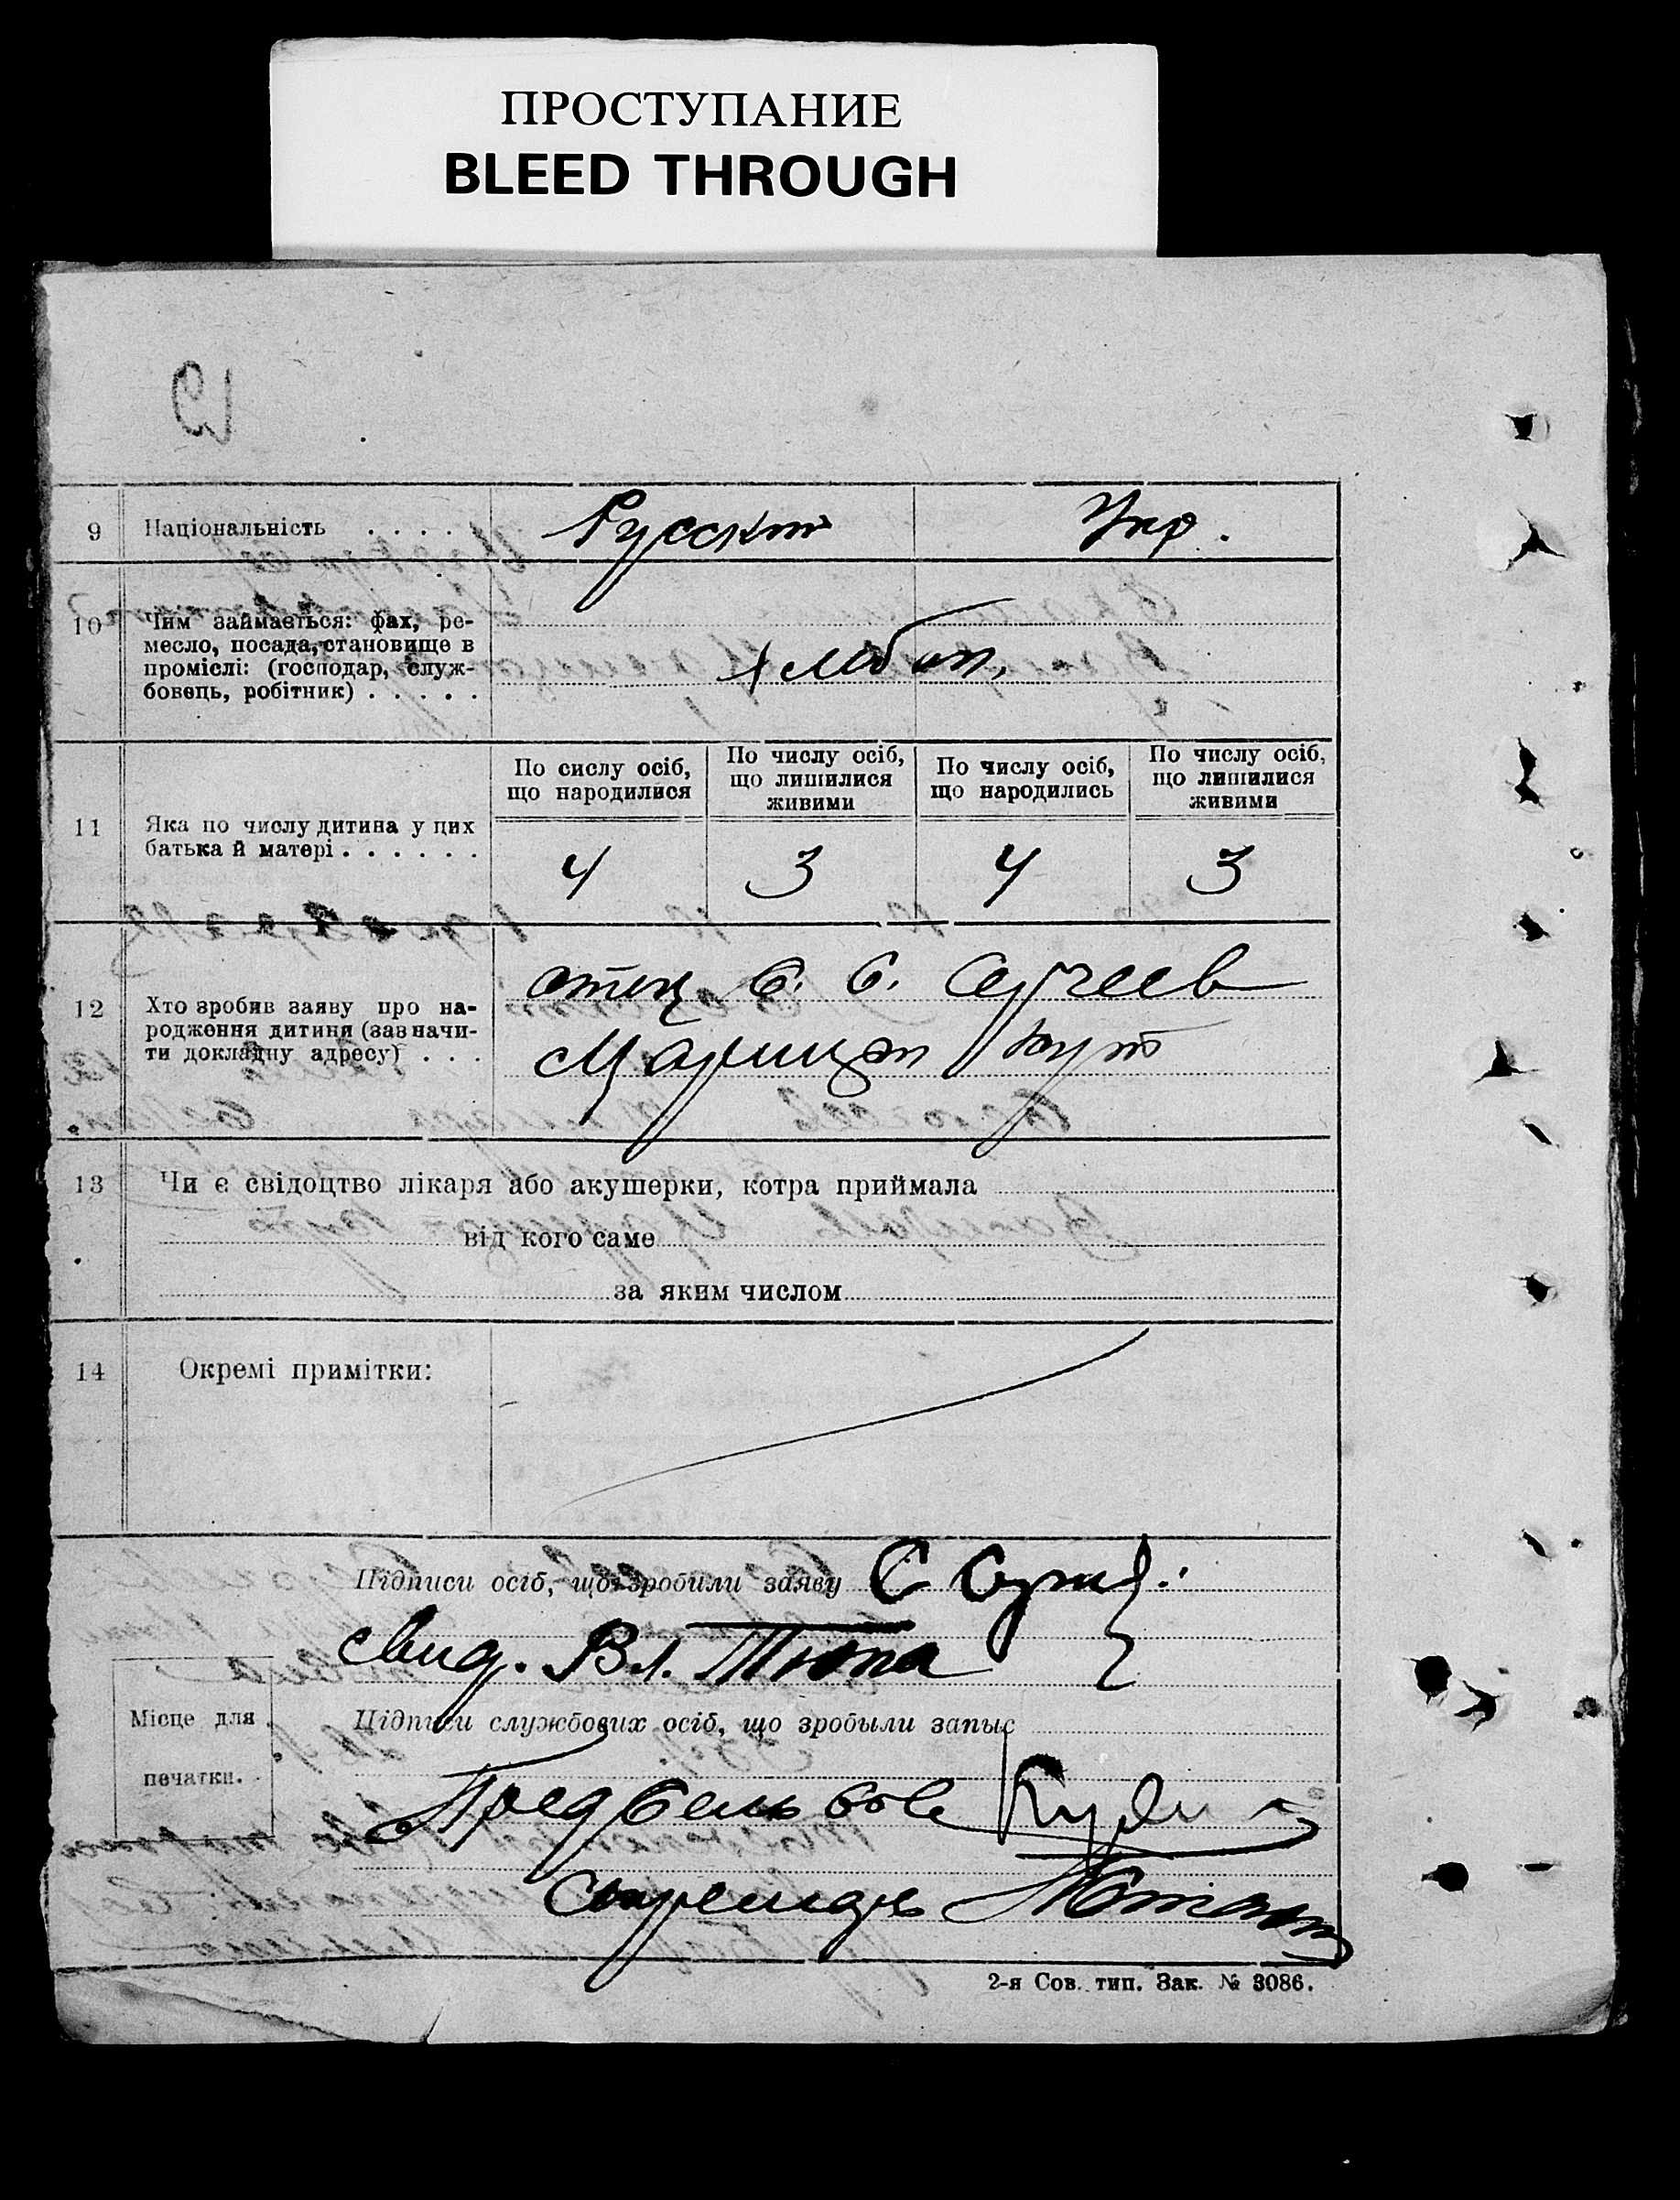 ПРОСТУПАНИЕ
BLEED THROUGH
9 Національність . . . . Русский Укр.
10 Чим займається: фах, ре-
месло, посада, становище в
проміслі: (господар, служ-
бовець, робітник) . . . . .
хлебоп.
11 Яка по числу дитина у цих
батька й матері . . . . . .
По сислу осіб,
що народилися
По числу осіб,
що лишилися
живими
По числу осіб,
що народились
По числу осіб,
що лишилися
живими
4 3 4 3
12 Хто зробив заяву про на-
родження дитини (зазначи-
ти докладну адресу) . . .
отец С. С. Сергеев
Марицын Кут
13 Чи є свідоцтво лікаря або акушерки, котра приймала
від кого саме
за яким числом
14 Окремі примітки:
Підписи осіб, що зробили заяву С
свид. Вл. Тюпа
Місце для
печатки.
Підписи службових осіб, що зробыли запыс
Пред
Секретарь
2-я Сов. тип. Зак. № 3086.